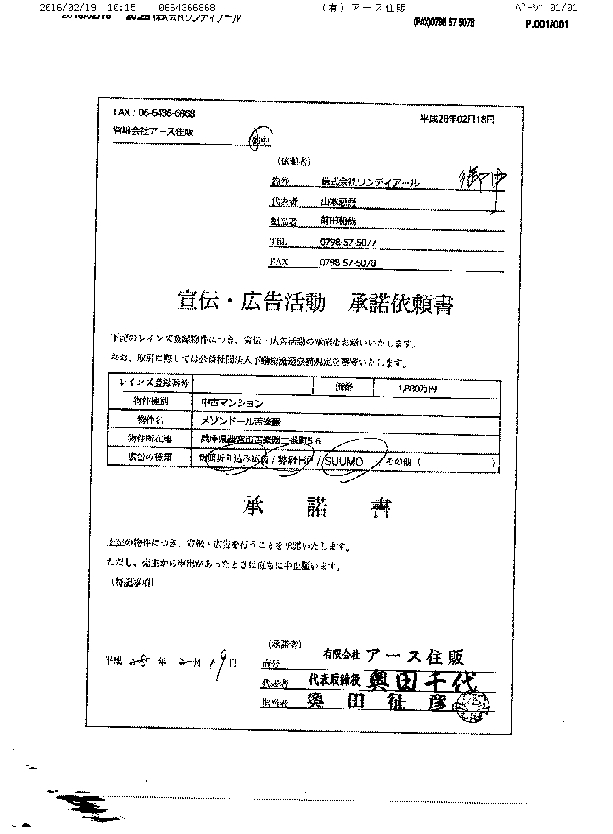 2016/02/19 10:15 0664366868 (有) アース住販 ページ 01/01
株式会社ワンディアール (FAX)0798 57 5078 P.001/001
FAX : 06-6436-6868 平成28年02月18日
有限会社アース住販
(依頼者)
商号 株式会社ワンディアール
代表者
担当者
TEL 0798-57-5077
FAX 0798-57-5078
宣伝・広告活動 承諾依頼書
下記のレインズ登録物件につき、宣伝・広告活動の承諾をお願いいたします。
なお、取引に際しては公益社団法人
レインズ登録番号 価格
物件種別 中古マンション
物件名 メゾンドール苦楽園
物件所在地 兵庫県西宮市苦楽園二番町5-6
広告の種類 新聞折り込み広告 / 弊社HP / SUUMO / その他 ( )
承 諾 書
上記の物件につき、宣伝・広告を行うことを承諾いたします。
ただし、売主から申出があったときは直ちに中止願います。
(特記事項)
(承諾者)
平成 28 年 2 月 19 日
商号 有限会社 アース住販
代表者 代表取締役 奥田千代
担当者 奥田 征彦